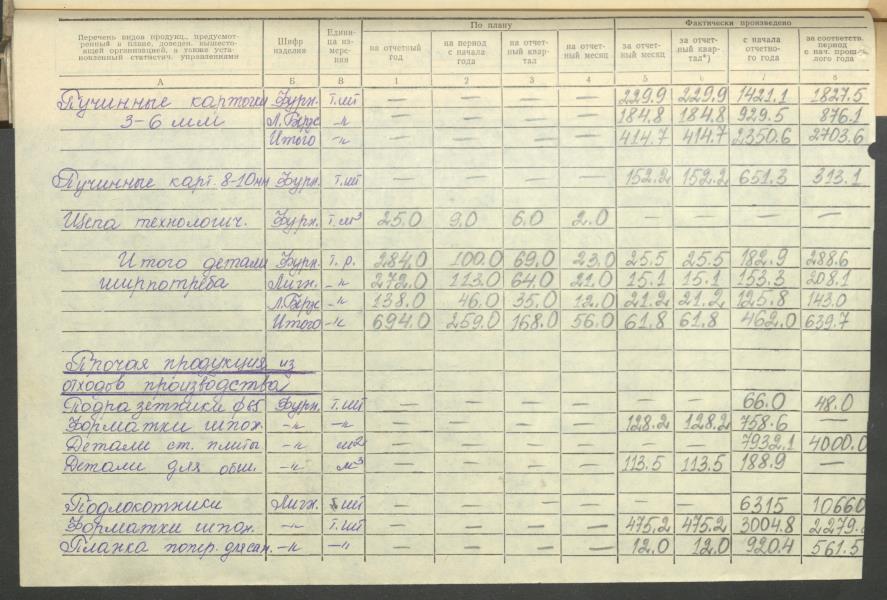 Перечень видов продукц., предусмот-
ренный в плане, доведен. вышесто-
ящей организацией, а также уста-
новленный статистич. управлениями
Шифр
изделия
Едини-
ца из-
мере-
ния
По плану
Фактически произведено
на отчетный
год
на период
с начала
года
на отчет-
ный квар-
тал
на отчет-
ный месяц
за отчет-
ный месяц
за отчет-
ный квар-
тал*)
с начала
отчетно-
го года
за соответств.
период
с нач. прош-
лого года
А Б В 1 2 3 4 5 6 7 8
Пучинные карточки Фурн. т.шт — — — — 229.9 229.9 1421.1 1827.5
3-6 мм Л.Берд -"- — — — — 184.8 184.8 929.5 876.1
Итого -"- — — — — 414.7 414.7 2350.6 2703.6
Пучинные карт. 8-10мм Фурн. т.шт — — — — 152.2 152.2 651.3 313.1
Щепа технологич. Фурн. т.м³ 25.0 9.0 6.0 2.0 — — — —
Итого детали Фурн. т.р. 284.0 100.0 69.0 23.0 25.5 25.5 182.9 288.6
ширпотреба Лигн. -"- 272.0 113.0 64.0 21.0 15.1 15.1 153.3 208.1
Л.Берд -"- 138.0 46.0 35.0 12.0 21.2 21.2 125.8 143.0
Итого -"- 694.0 259.0 168.0 56.0 61.8 61.8 462.0 639.7
Прочая продукция из
отходов производства
Подразетники ф65 Фурн. т.шт — — — — — — 66.0 48.0
Форматки шпон. -"- -"- — — — — 128.2 128.2 758.6 —
Детали ст. плиты -"- м² — — — — — — 7932.1 4000.0
Детали для обш. -"- м³ — — — — 113.5 113.5 188.9 —
Подлокотники Лигн. т.шт — — — — — — 6315 10660
Форматки шпон. -"- т.шт — — — — 475.2 475.2 3004.8 2279.
Планка попер. для сан. -"- -"- — — — — 12.0 12.0 920.4 561.5